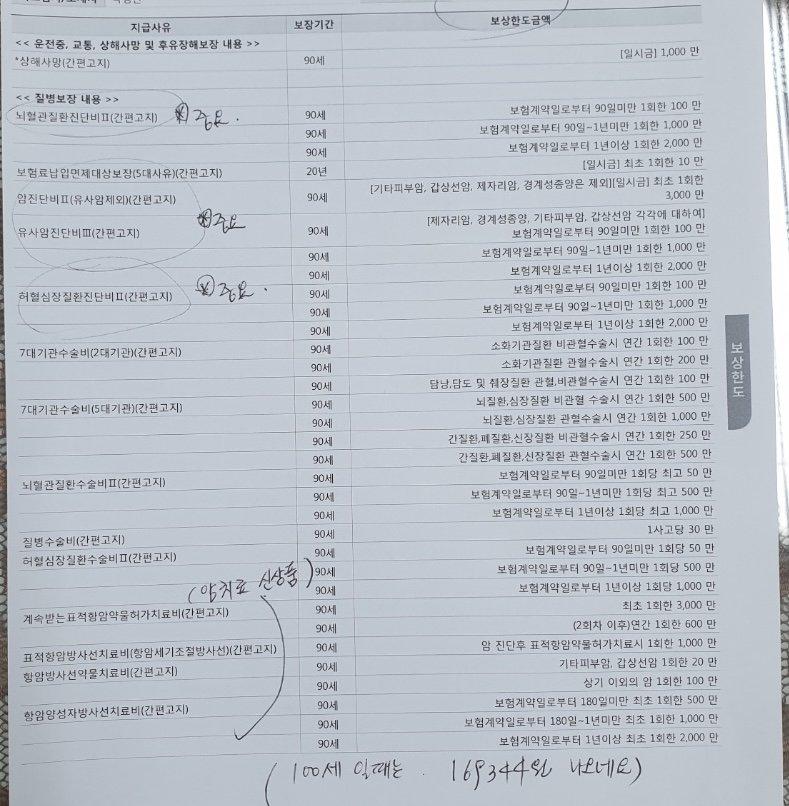 지급사유 보장기간 보상한도금액
<< 운전중, 교통, 상해사망 및 후유장해보장 내용 >>
*상해사망(간편고지) 90세 [일시금] 1,000 만
<< 질병보장 내용 >>
뇌혈관질환진단비II(간편고지) 중요. 90세 보험계약일로부터 90일미만 1회한 100 만
90세 보험계약일로부터 90일~1년미만 1회한 1,000 만
90세 보험계약일로부터 1년이상 1회한 2,000 만
보험료납입면제대상보장(5대사유)(간편고지) 20년 [일시금] 최초 1회한 10 만
암진단비II(유사암제외)(간편고지) 90세 [기타피부암, 갑상선암, 제자리암, 경계성종양은 제외][일시금] 최초 1회한
3,000 만
중요
유사암진단비III(간편고지) 90세 [제자리암, 경계성종양, 기타피부암, 갑상선암 각각에 대하여]
보험계약일로부터 90일미만 1회한 100 만
90세 보험계약일로부터 90일~1년미만 1회한 1,000 만
90세 보험계약일로부터 1년이상 1회한 2,000 만
허혈심장질환진단비II(간편고지) 중요. 90세 보험계약일로부터 90일미만 1회한 100 만
90세 보험계약일로부터 90일~1년미만 1회한 1,000 만
90세 보험계약일로부터 1년이상 1회한 2,000 만
7대기관수술비(2대기관)(간편고지) 90세 소화기관질환 비관혈수술시 연간 1회한 100 만
90세 소화기관질환 관혈수술시 연간 1회한 200 만
90세 담낭,담도 및 췌장질환 관혈,비관혈수술시 연간 1회한 100 만
7대기관수술비(5대기관)(간편고지) 90세 뇌질환,심장질환 비관혈 수술시 연간 1회한 500 만
90세 뇌질환,심장질환 관혈수술시 연간 1회한 1,000 만
90세 간질환,폐질환,신장질환 비관혈수술시 연간 1회한 250 만
90세 간질환,폐질환,신장질환 관혈수술시 연간 1회한 500 만
뇌혈관질환수술비II(간편고지) 90세 보험계약일로부터 90일미만 1회당 최고 50 만
90세 보험계약일로부터 90일~1년미만 1회당 최고 500 만
90세 보험계약일로부터 1년이상 1회당 최고 1,000 만
질병수술비(간편고지) 90세 1사고당 30 만
허혈심장질환수술비II(간편고지) 90세 보험계약일로부터 90일미만 1회당 50 만
90세 보험계약일로부터 90일~1년미만 1회당 500 만
(암치료 신상품) 90세 보험계약일로부터 1년이상 1회당 1,000 만
계속받는표적항암약물허가치료비(간편고지) 90세 최초 1회한 3,000 만
90세 (2회차 이후)연간 1회한 600 만
표적항암방사선치료비(항암세기조절방사선)(간편고지) 90세 암 진단후 표적항암약물허가치료시 1회한 1,000 만
항암방사선약물치료비(간편고지) 90세 기타피부암, 갑상선암 1회한 20 만
90세 상기 이외의 암 1회한 100 만
항암양성자방사선치료비(간편고지) 90세 보험계약일로부터 180일미만 최초 1회한 500 만
90세 보험계약일로부터 180일~1년미만 최초 1회한 1,000 만
90세 보험계약일로부터 1년이상 최초 1회한 2,000 만
(100세 일때는. 169344원 나오네요)
보상한도